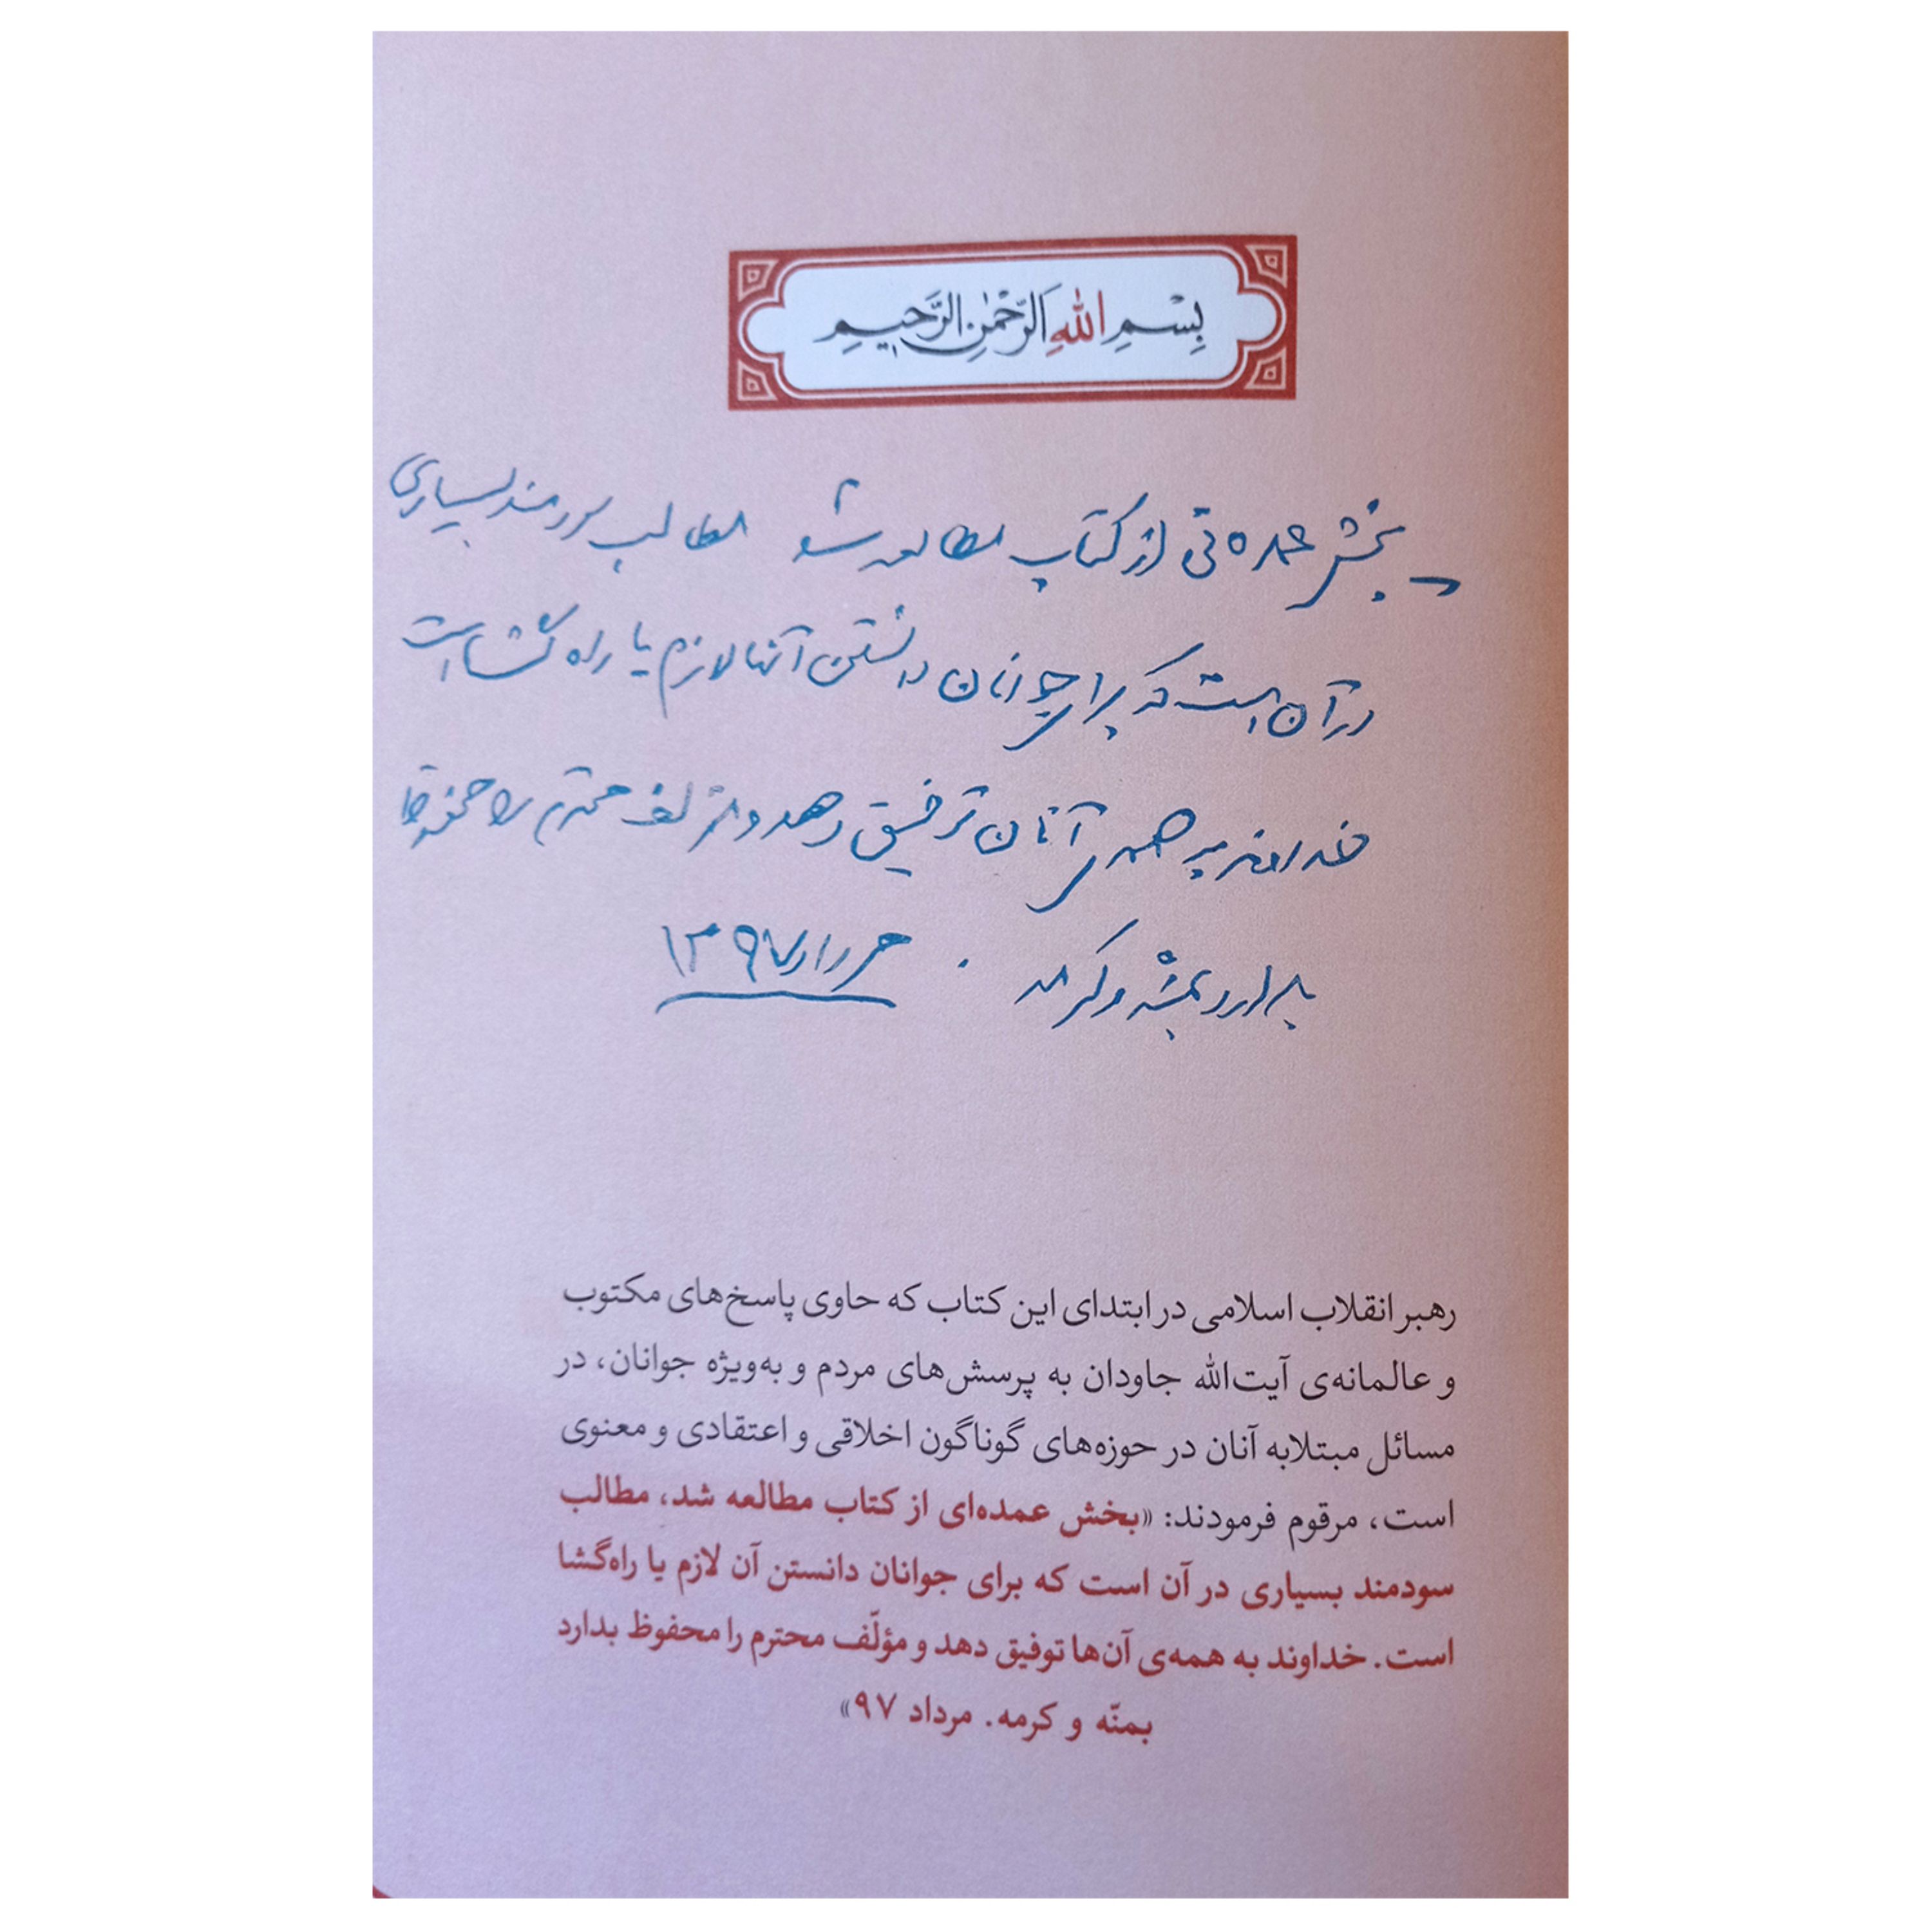 بِسْمِ اللهِ الرَّحْمٰنِ الرَّحِیمِ
بخش عمده ئی از کتاب مطالعه شد مطالب سودمند بسیاری
در آن است که برای جوانان دانستن آنها لازم یا راه گشا است
خداوند به همه‌ی آنان توفیق دهد و مؤلف محترم را محفوظ
بدارد بمنّه و کرمه . مرداد ۱۳۹۷
رهبر انقلاب اسلامی در ابتدای این کتاب که حاوی پاسخ‌های مکتوب
و عالمانه‌ی آیت‌الله جاودان به پرسش‌های مردم و به‌ویژه جوانان، در
مسائل مبتلابه آنان در حوزه‌های گوناگون اخلاقی و اعتقادی و معنوی
است، مرقوم فرمودند: «بخش عمده‌ای از کتاب مطالعه شد، مطالب
سودمند بسیاری در آن است که برای جوانان دانستن آن لازم یا راه‌گشا
است. خداوند به همه‌ی آن‌ها توفیق دهد و مؤلّف محترم را محفوظ بدارد
بمنّه و کرمه. مرداد ۹۷»